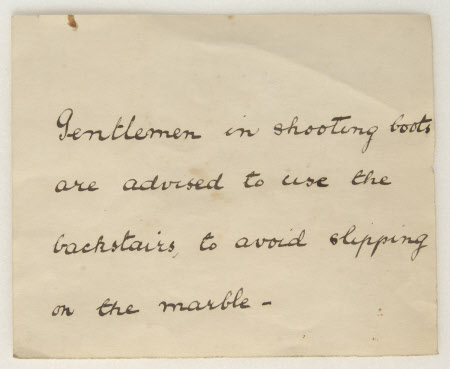 Gentlemen in shooting boots
are advised to use the
backstairs, to avoid slipping
on the marble -